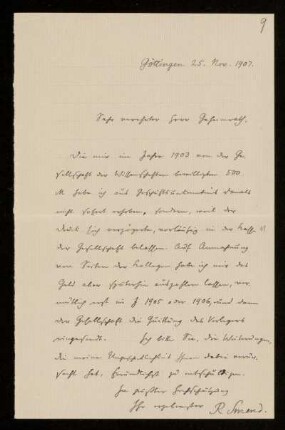 9
Göttingen 25. Nov. 1907.
Sehr verehrter Herr Geheimrath.
Die mir im Jahre 1903 von der Ge-
sellschaft der Wissenschaften bewilligten 500
M habe ich aus Geschäftsunkenntnis damals
nicht sofort erhoben, sondern, weil der
Druck sich verzögerte, vorläufig in der Kasse
der Gesellschaft belassen. Auf Anmahnung
von Seiten des Kollegen habe ich mir das
Geld aber spätestens auszahlen lassen,
mündlich erst in J 1905 oder 1906, und dann
der Gesellschaft die Quittung des Verlegers
eingesandt. Ich bitte Sie, die Weiterungen,
die meine Ungeschicklichkeit Ihnen dabei verur-
sacht hat, freundlichst zu entschuldigen.
In größter Hochschätzung
Ihr ergebenster R. Smend.